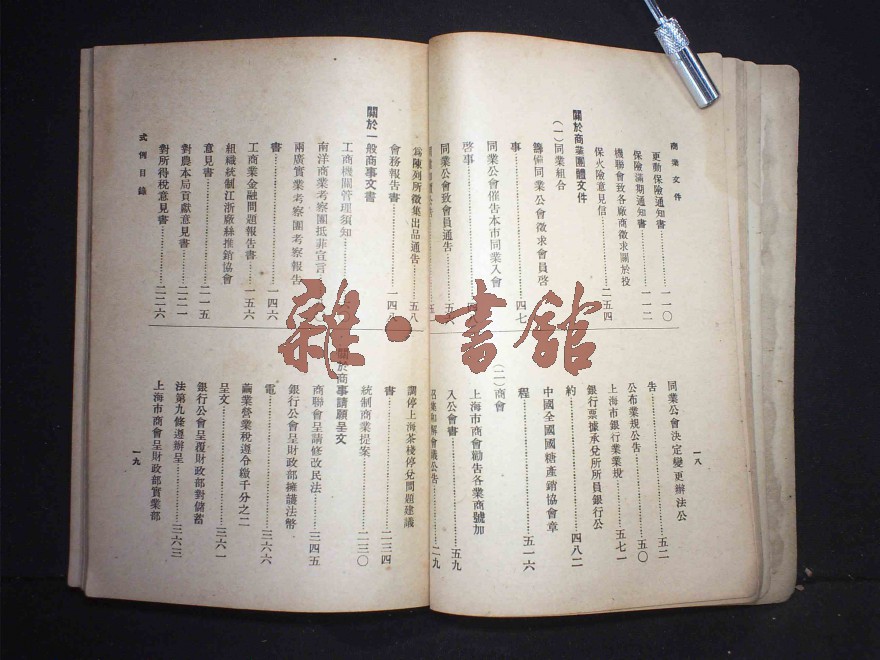 商業文件
更動保險通知書……一一〇
保險滿期通知書……一一二
機聯會致各廠商徵求關於投
保火險意見信……二五四
關於商業團體文件
(一)同業組合
籌備同業公會徵求會員啓
事……四七
同業公會催告本市同業入會
啓事……
同業公會致會員通告……五
爲陳列所徵集出品通告……五八
一八
同業公會決定變更辦法公
告……五二
公布業規公告……五〇
上海市銀行業業規……五七一
銀行票據承兌所所員銀行公
約……四八二
中國全國國糖產銷協會章
程……五一六
(二)商會
上海市商會勸告各業商號加
入公會書……五九
召集和解會議公告……二九
會務報告書……一四八
關於一般商事文書
工商機關管理須知……
南洋商業考察團抵菲宣言……
兩廣實業考察團考察報告
書……一四六
工商業金融問題報告書……一五六
組織統制江浙廠絲推銷協會
意見書……二一五
對農本局貢獻意見書……二二一
對所得稅意見書……二二六
式例目錄
調停上海茶棧停兌問題建議
書……二三四
統制商業提案……二三〇
關於商事請願呈文
商聯會呈請修改民法……三四五
銀行公會呈財政部擁護法幣
電……三六六
繭業營業稅遵令繳千分之二
呈文……三六一
銀行公會呈覆財政部對儲蓄
法第九條遵辦呈……三六三
上海市商會呈財政部實業部
一九
雜·書館